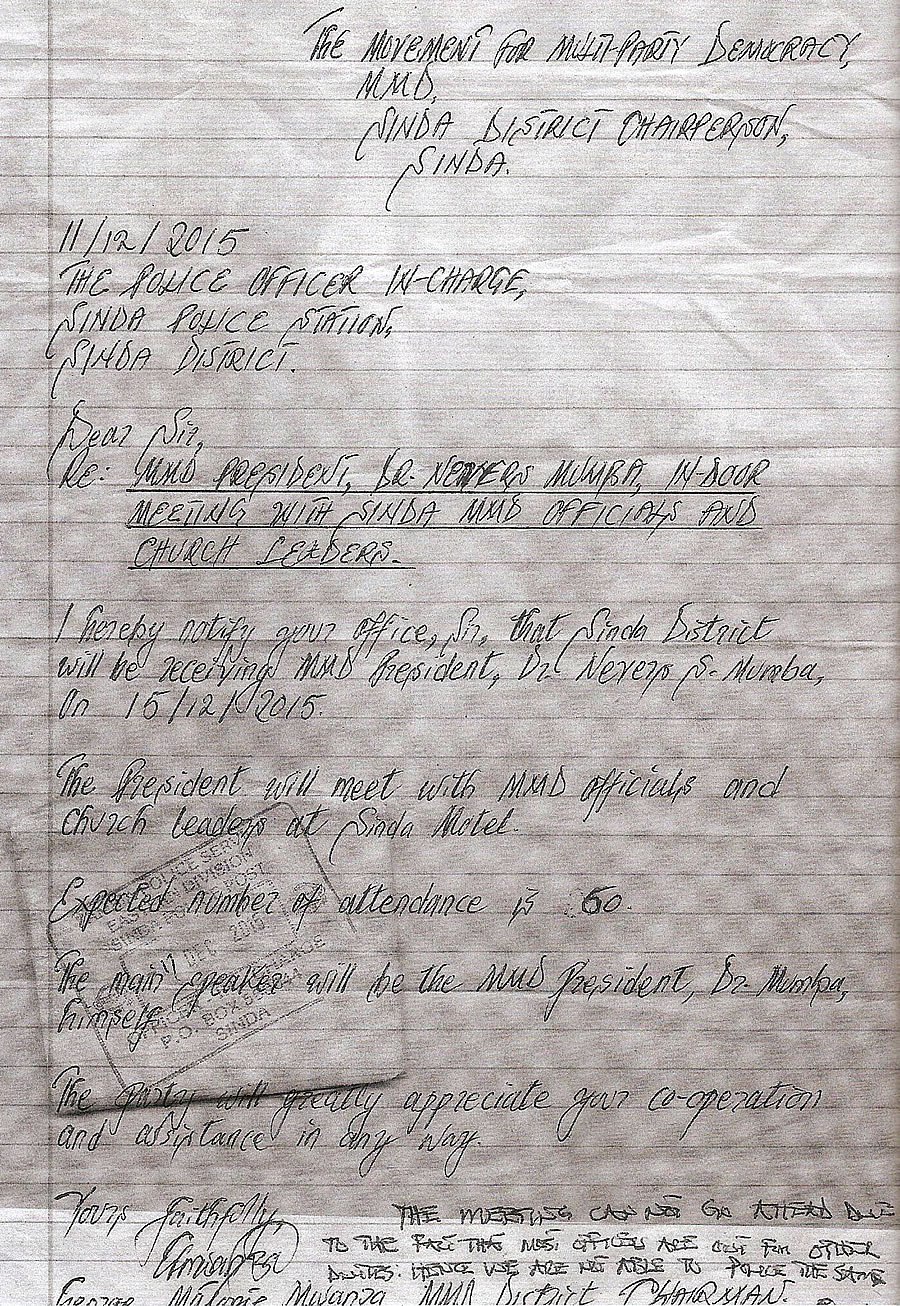 The Movement for Multi-Party Democracy,
MMD,
Sinda District Chairperson,
Sinda.
11/12/2015
The Police Officer In-Charge,
Sinda Police Station,
Sinda District.
Dear Sir,
Re: MMD President, Dr. Nevers Mumba, In-door
Meeting with Sinda MMD Officials and
Church Leaders.
I hereby notify your office, Sir, that Sinda District
will be receiving MMD President, Dr. Nevers S. Mumba,
On 15/12/2015.
The President will meet with MMD officials and
church leaders at Sinda Motel.
POLICE SERV
EASTERN DIVISION
SINDA POLICE POST
Expected number of attendance is 60.
11 DEC 2015
The main speaker will be the MMD President, Dr. Mumba,
himself.
P.O. BOX
SINDA
The Party will greatly appreciate your co-operation
and assistance in any way.
Yours faithfully,
THE MEETING CAN NOT GO AHEAD DUE
TO THE FACT THAT MOST OFFICERS ARE OUT FOR OTHER
DUTIES. HENCE WE ARE NOT ABLE TO POLICE THE SAME
George Mwanza MMD District CHAIRMAN.